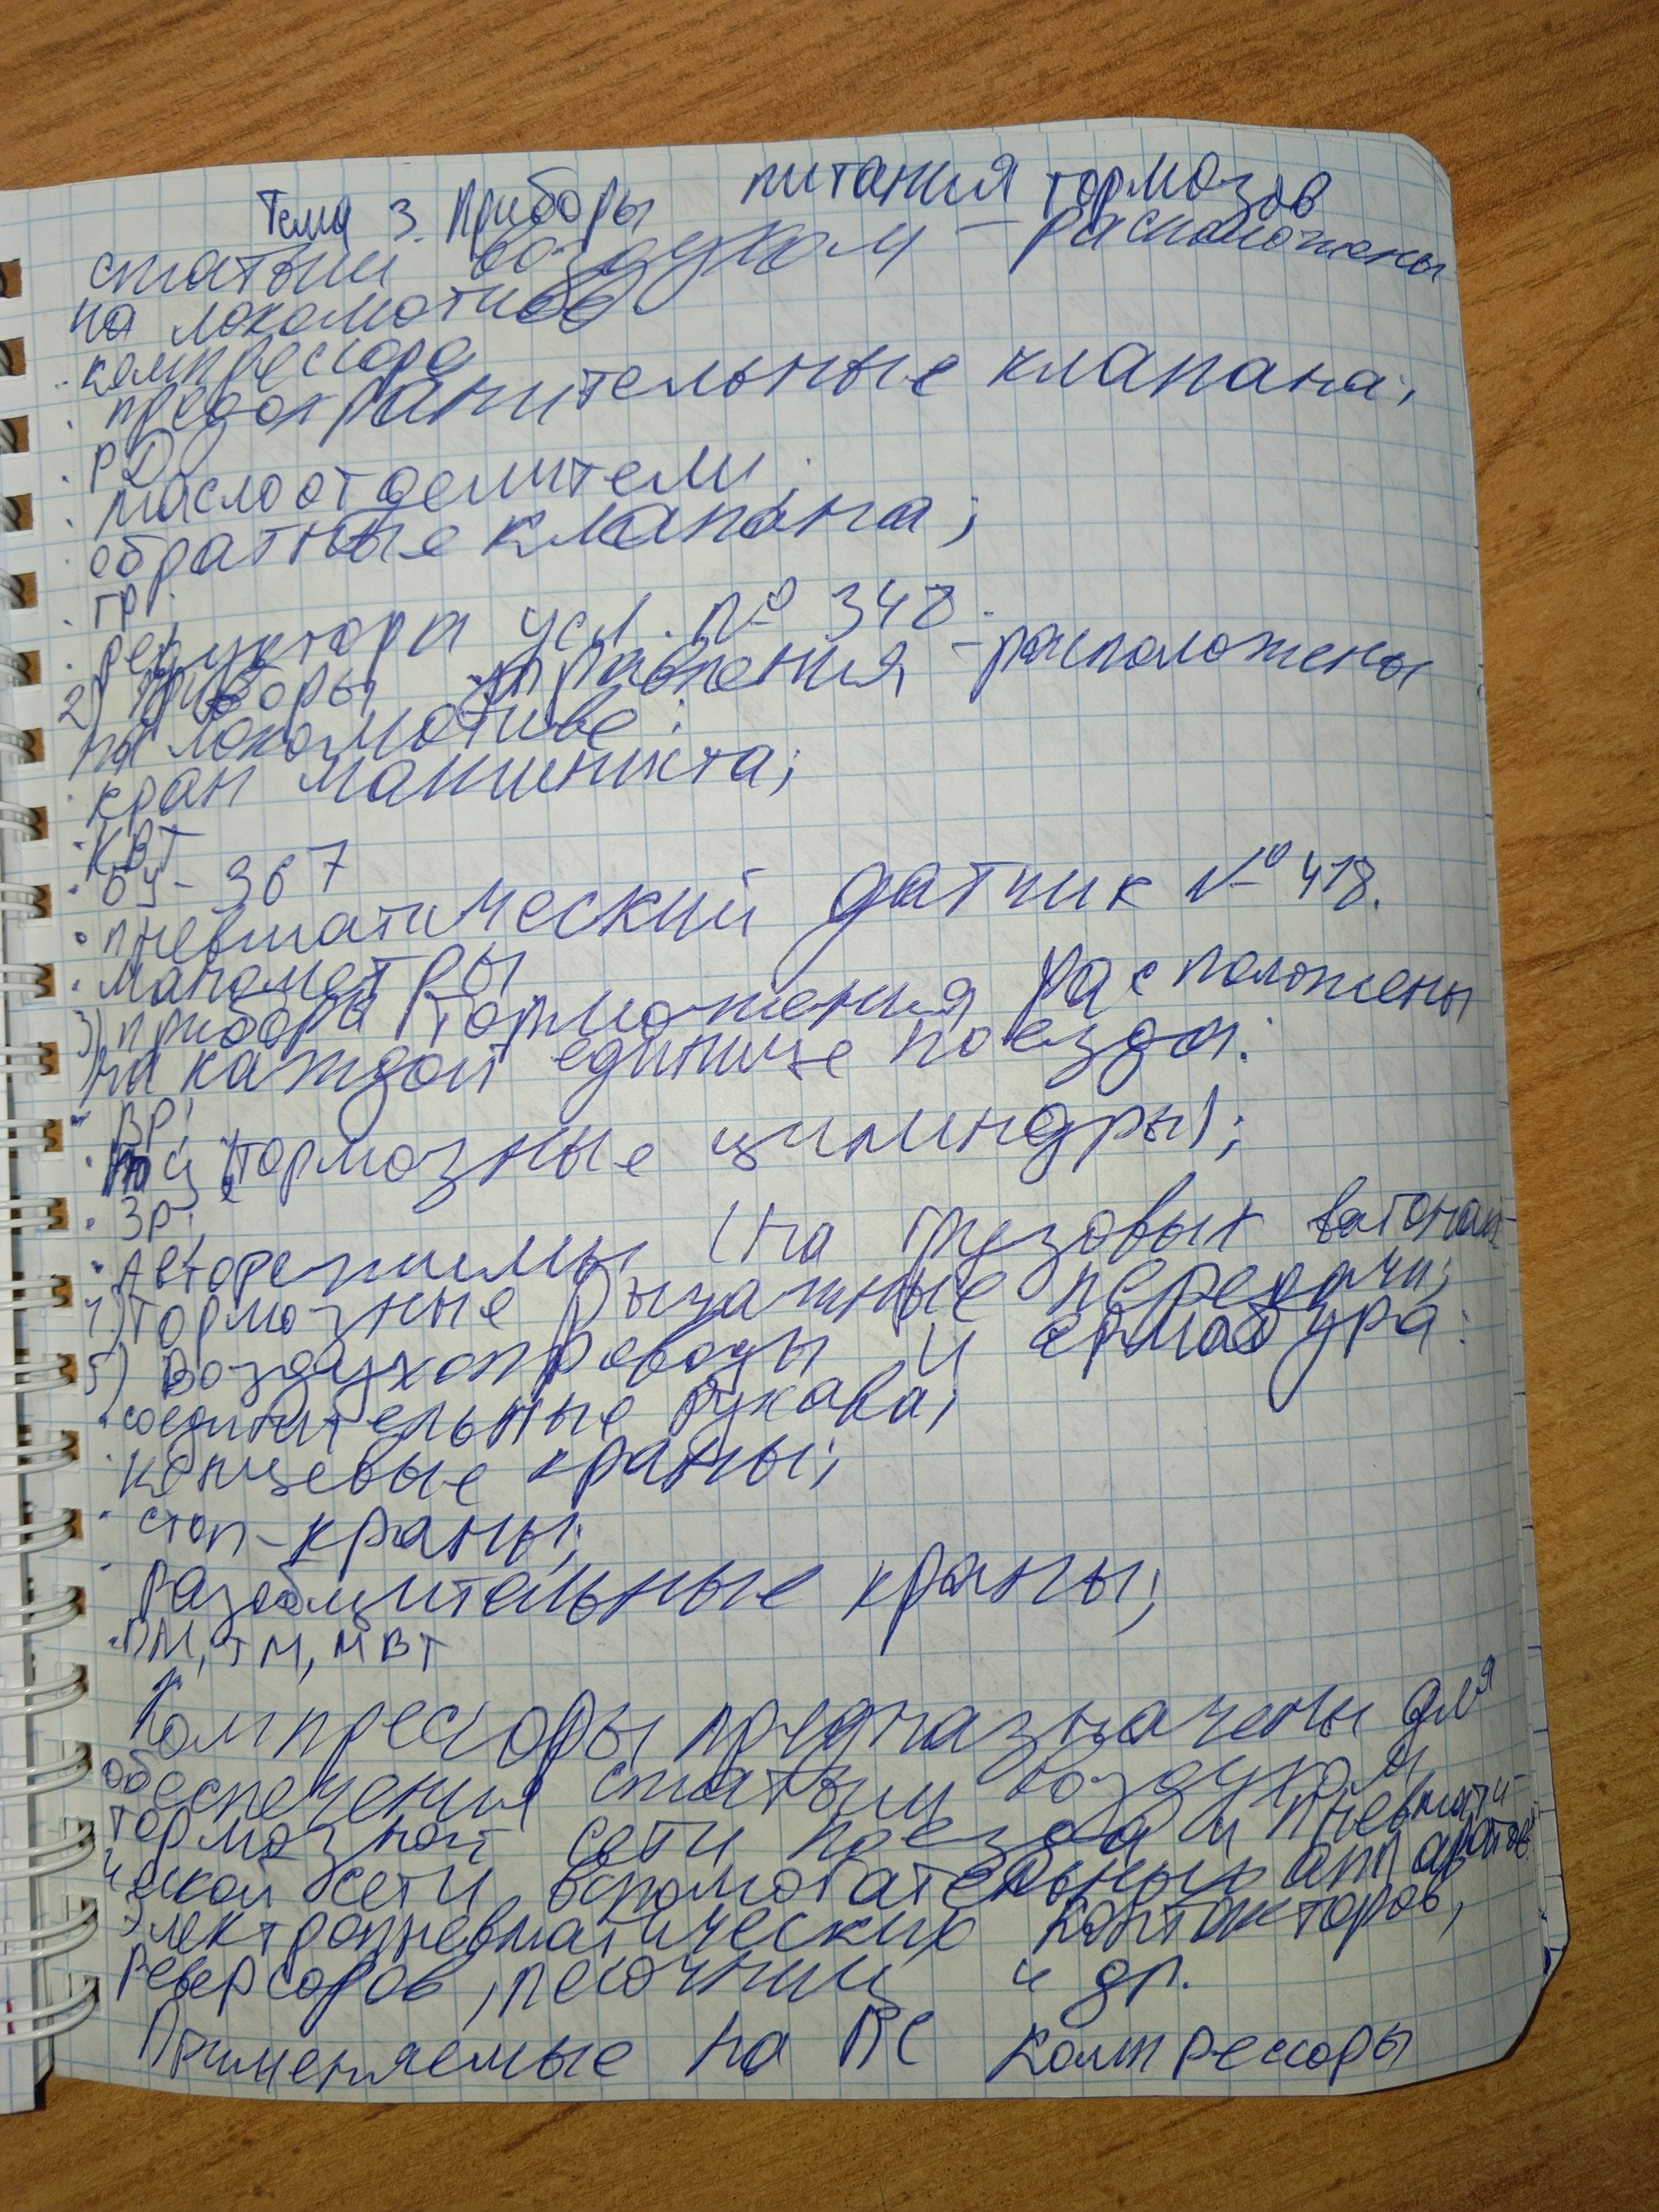 Тема 3. Приборы питания тормозов
сжатым воздухом – расположены
на локомотиве
· компрессора
· предохранительные клапана;
· РД
· маслоотделители;
обратные клапана;
· ГР;
· редуктора усл. № 348.
2) Приборы управления – расположены
на локомотиве:
· кран машиниста;
· КВТ
· БУ - 367
· пневматический датчик № 418.
· манометры
3) приборы торможения расположены
на каждой единице поезда:
· ВР;
· тц (тормозные цилиндры);
· ЗР;
· Авторежимы (на грузовых вагонах
4) Тормозные рычажные передачи;
5) Воздухопроводы и арматура:
· соединительные рукава;
· концевые краны;
· стоп-краны;
· разобщительные краны;
· ПМ, ТМ, МВТ
Компрессоры предназначены для
обеспечения сжатым воздухом
тормозной сети поезда и пневмати-
ческой сети вспомогательных аппаратов:
электропневматических контакторов,
реверсоров, песочниц и др.
Применяемые на ПС компрессоры